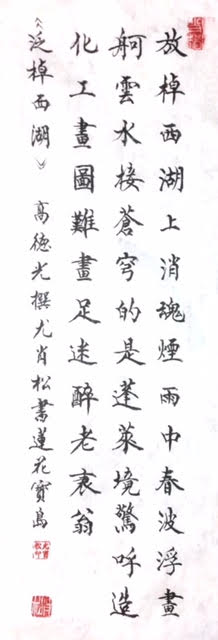 放棹西湖上消魂煙雨中春波浮畫
舸雲水接蒼穹的是蓬萊境驚呼造
化工畫圖難畫足迷醉老衰翁
《泛棹西湖》高德光撰尤肖松書蓮花寶島